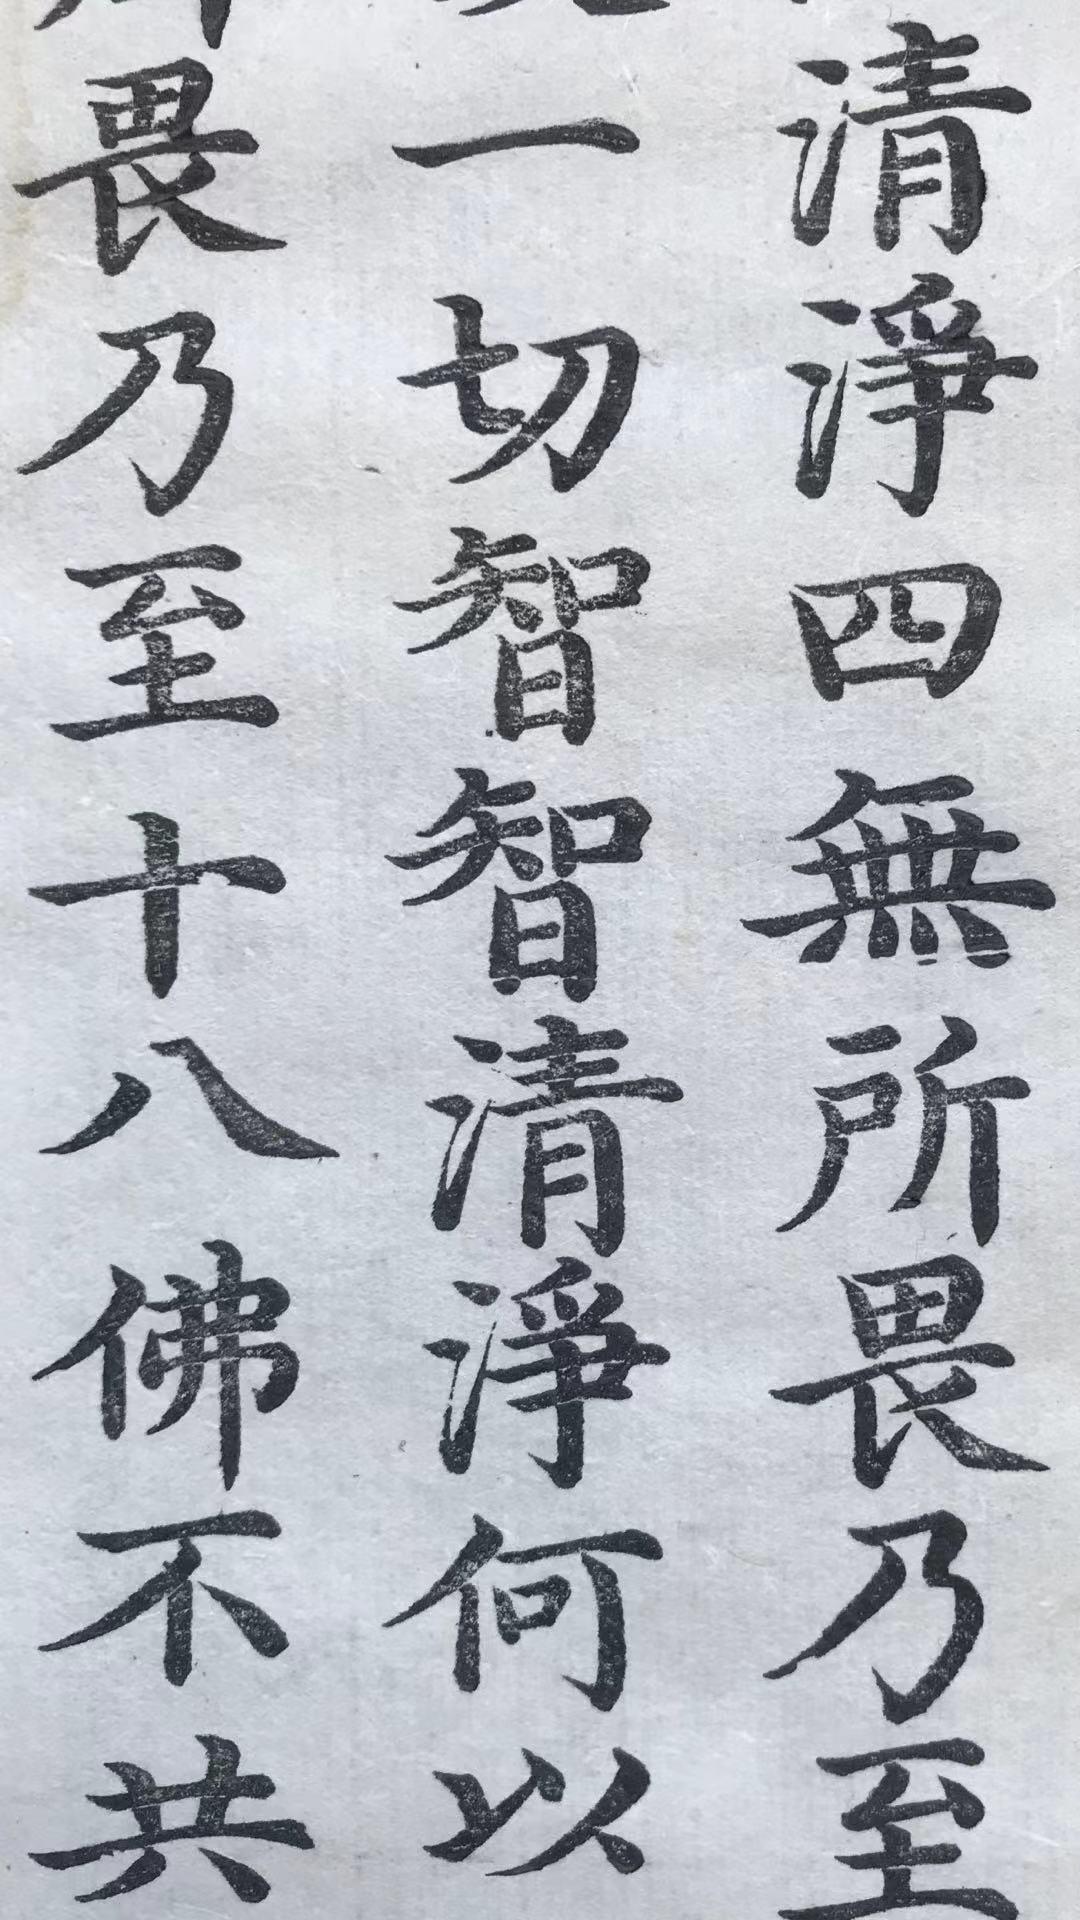 清淨四無所畏乃至
一切智智清淨何以
畏乃至十八佛不共